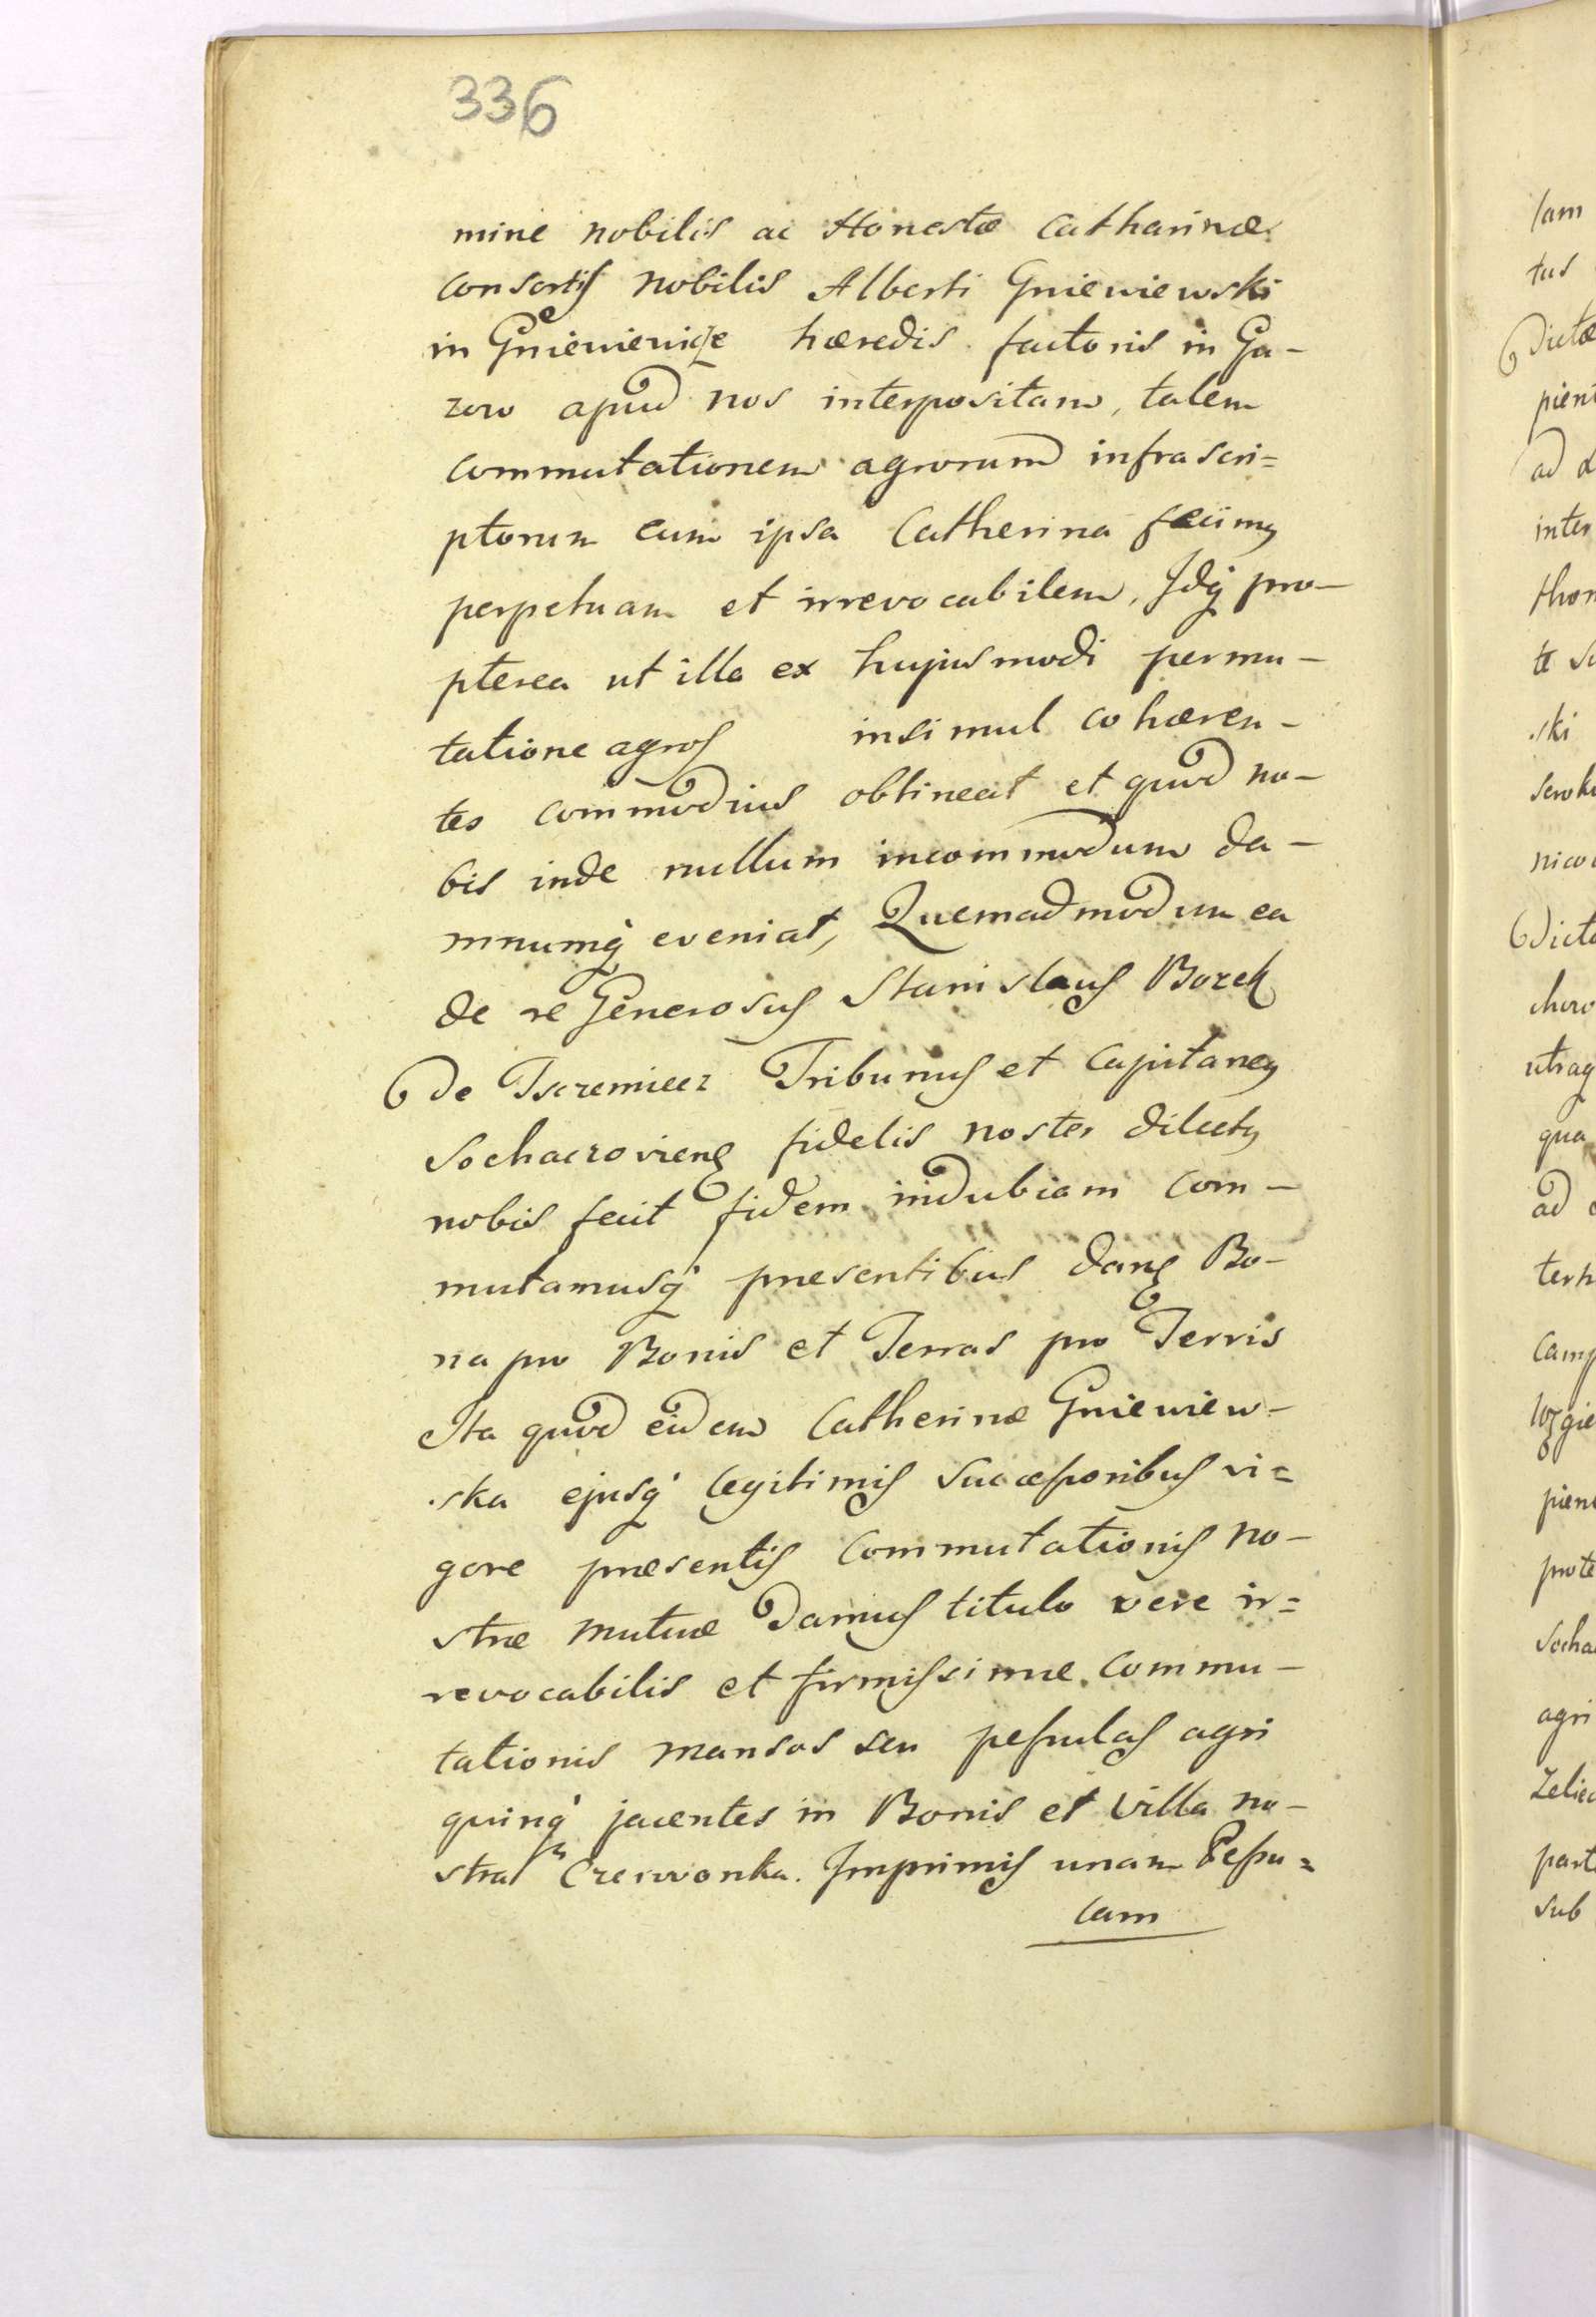 336
mine nobilis ac Honestæ Catharinæ
consortis nobilis Alberti Gniewiewski
in Gniewiewice hæredis factoris in Ga-
zow apud nos interpositam, talem
commutationem agrorum infra scri=
ptorum cum ipsa Catherina fecimus
perpetuam et irrevocabilem, Idq pro-
pterea ut illa ex hujusmodi permu-
tatione agros insimul cohæren-
tes commodius obtineat et quod no-
bis inde nullum incommodum da-
mnumq eveniat, Quemadmodum ea
de re Generosus Stanislaus Borek
de Tscremiecz Tribunus et Capitaneus
Sochaczoviens fidelis noster dilectus
nobis fecit fidem indubiam com-
mutamusq præsentibus dans Bo-
na pro Bonis et Terras pro Terris
Ita quod eidem Catherinæ Gniewiew-
ska ejusq legitimis successoribus vi=
gore præsentis commutationis no-
stræ mutuæ damus titulo vere ir=
revocabilis et firmissimæ commu-
tationis mansos seu pessulas agri
quinq jacentes in Bonis et Villa no-
stra Czerwonka. Imprimis unam Pessu=
lam